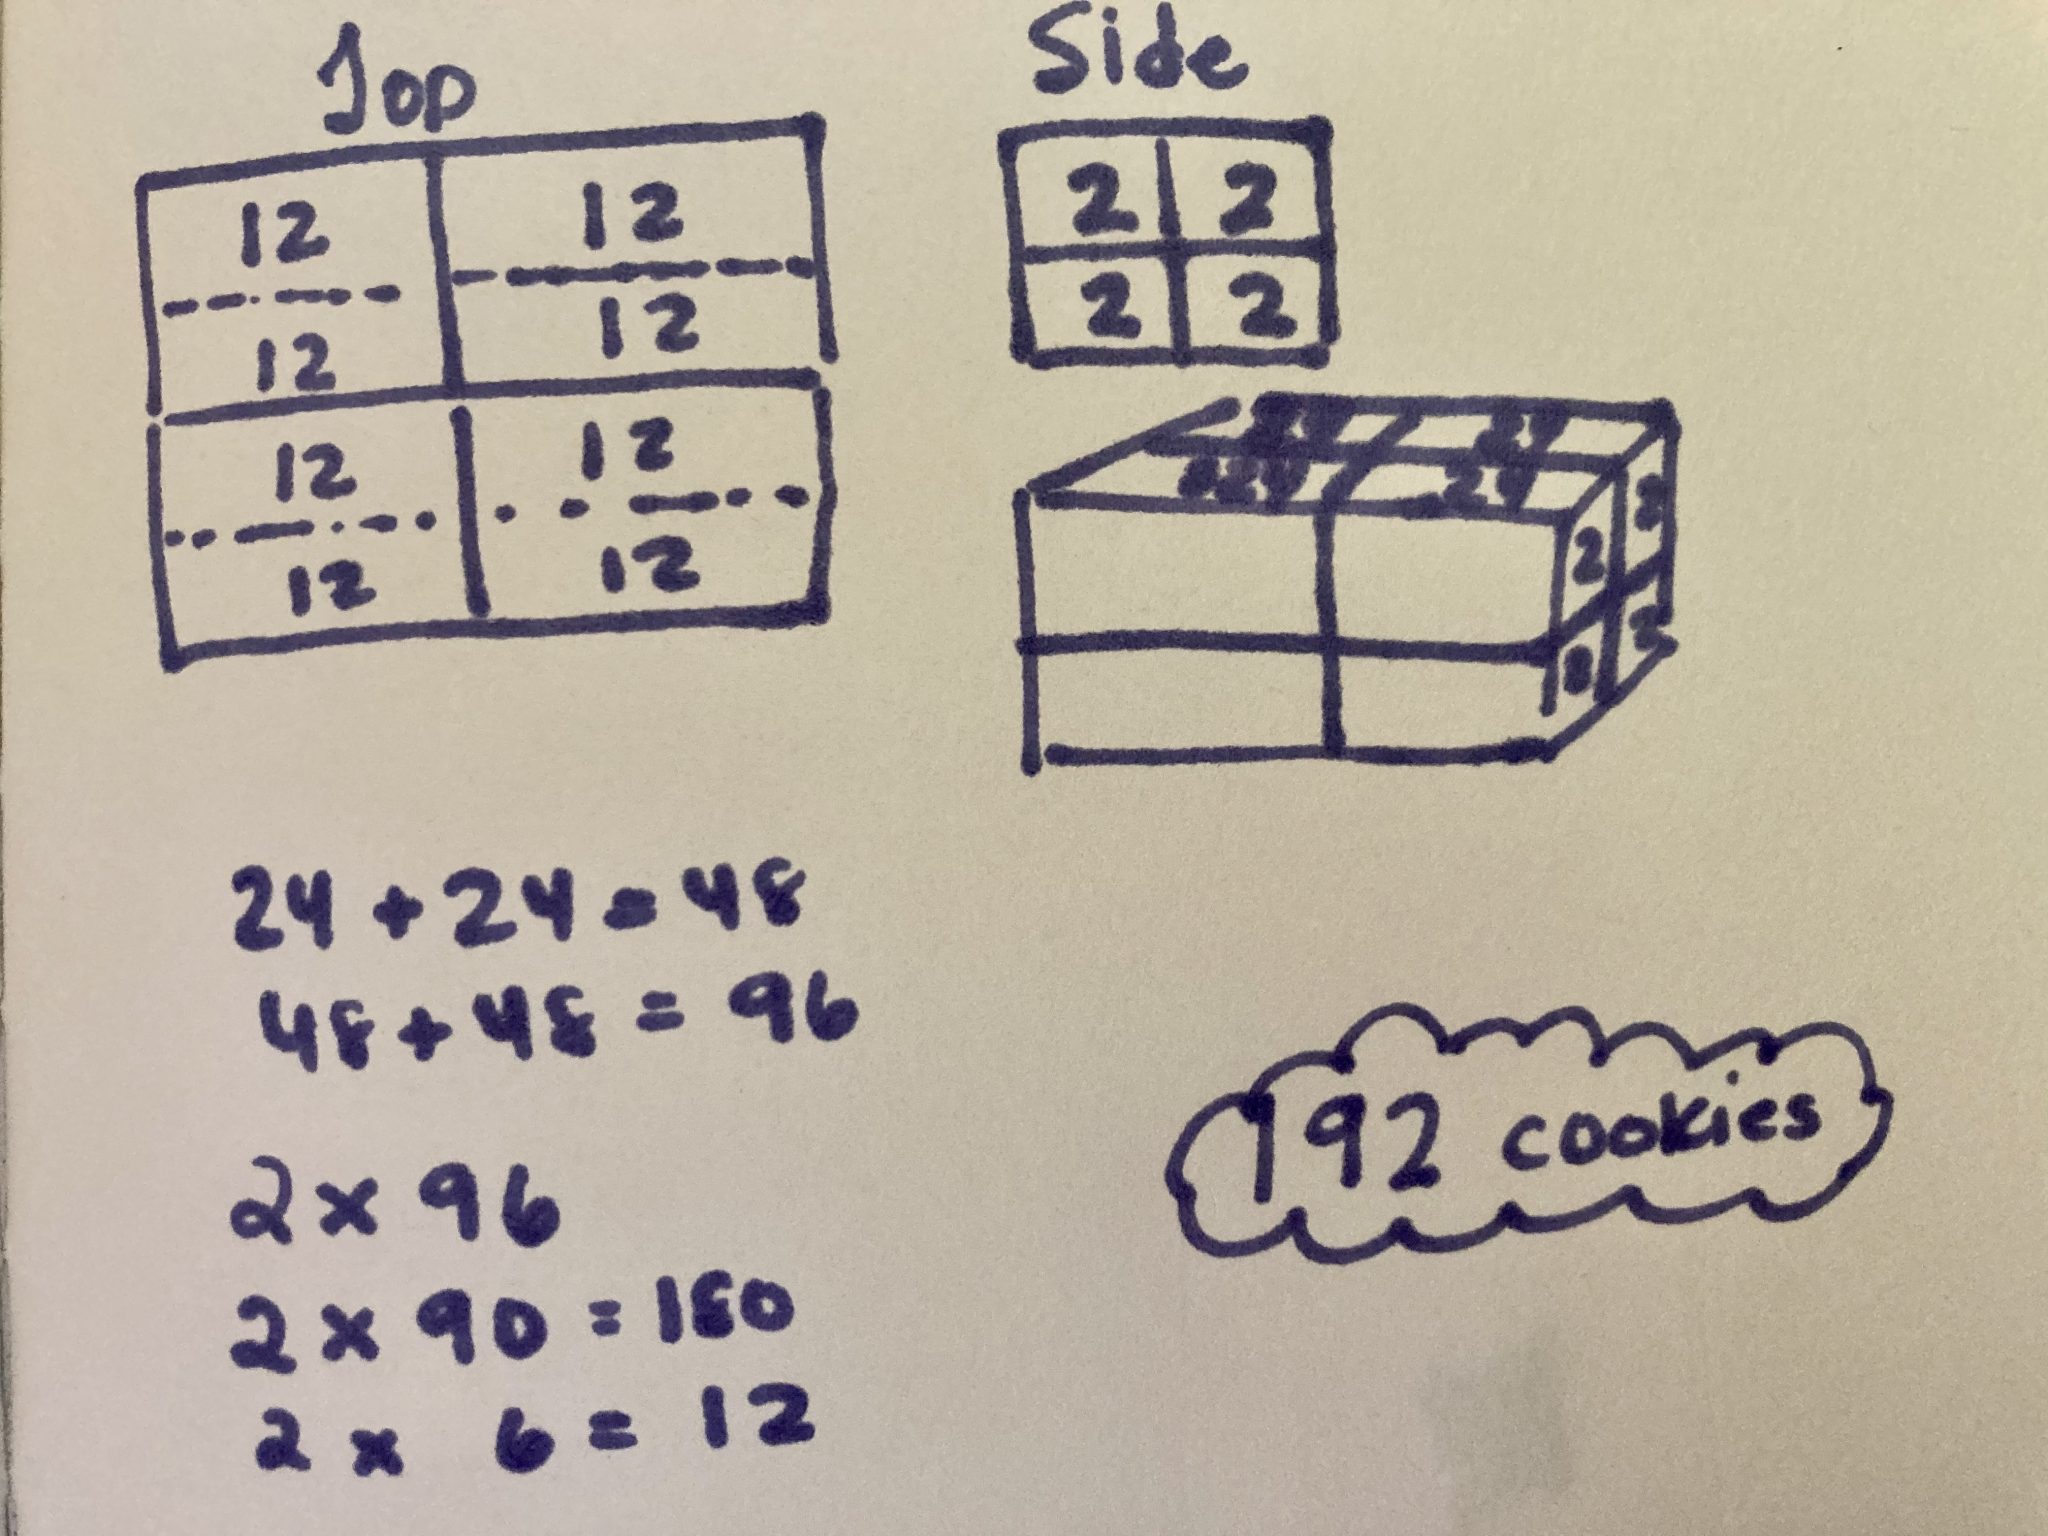 Top
12 12
12 12
12 12
12 12
Side
2 2
2 2
24 24
24 24
2 2
2
24 + 24 = 48
48 + 48 = 96
2 x 96
2 x 90 = 180
2 x 6 = 12
192 cookies